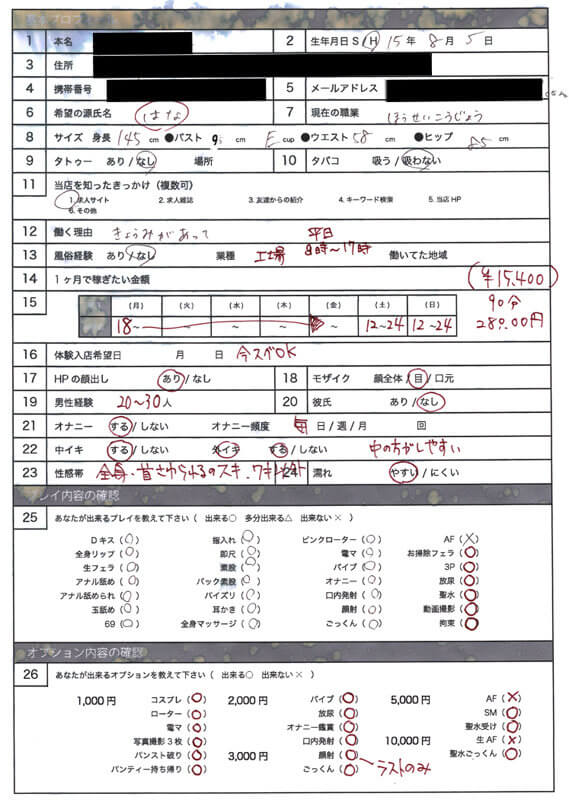 1 本名 2 生年月日 S / H 15年 8月 5日
3 住所
4 携帯番号 5 メールアドレス
6 希望の源氏名 はな 7 現在の職業 ほうせいこうじょう
8 サイズ 身長 145 cm ●バスト cm E cup ●ウエスト 58 cm ●ヒップ 85 cm
9 タトゥー あり / なし 場所 10 タバコ 吸う / 吸わない
11 当店を知ったきっかけ（複数可）
1. 求人サイト 2. 求人雑誌 3. 友達からの紹介 4. キーワード検索 5. 当店 HP
6. その他
12 働く理由 きょうみがあって 平日
13 風俗経験 あり / なし 業種 工場 8時〜17時 働いてた地域
14 1ヶ月で稼ぎたい金額 (¥15,400)
15 （月） （火） （水） （木） （金） （土） （日） 90分
18〜 〜 〜 〜 〜 12〜24 12〜24 28000円
16 体験入店希望日 月 日 今スグOK
17 HPの顔出し あり / なし 18 モザイク 顔全体 / 目 / 口元
19 男性経験 20〜30人 20 彼氏 あり / なし
21 オナニー する / しない オナニー頻度 毎 日 / 週 / 月 回
22 中イキ する / しない 外イキ する / しない 中の方がしやすい
23 性感帯 全身・首さわられるのスキ、ワキ 24 濡れ やすい / にくい
プレイ内容の確認
25 あなたが出来るプレイを教えて下さい（ 出来る○ 多分出来る△ 出来ない× ）
Dキス（○） 指入れ（○） ピンクローター（○） AF（×）
全身リップ（○） 即尺（○） 電マ（○） お掃除フェラ（○）
生フェラ（○） 素股（○） バイブ（○） 3P（○）
アナル舐め（○） バック素股（○） オナニー（○） 放尿（○）
アナル舐められ（○） パイズリ（○） 口内発射（○） 聖水（○）
玉舐め（○） 耳かき（○） 顔射（○） 動画撮影（○）
69（○） 全身マッサージ（○） ごっくん（○） 拘束（○）
オプション内容の確認
26 あなたが出来るオプションを教えて下さい（ 出来る○ 出来ない× ）
1,000円 コスプレ（○） 2,000円 バイブ（○） 5,000円 AF（×）
ローター（○） 放尿（○） SM（○）
電マ（○） オナニー鑑賞（○） 聖水受け（○）
写真撮影3枚（○） 口内発射（○） 10,000円 生AF（×）
パンスト破り（○） 3,000円 顔射（○） 聖水ごっくん（○）
パンティー持ち帰り（○） ごっくん（○） ラストのみ